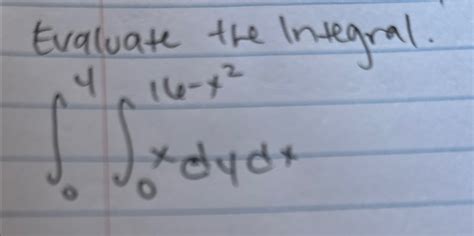 Evaluate the Integral.
∫₀⁴ ∫₀^(16-x²) x dy dx